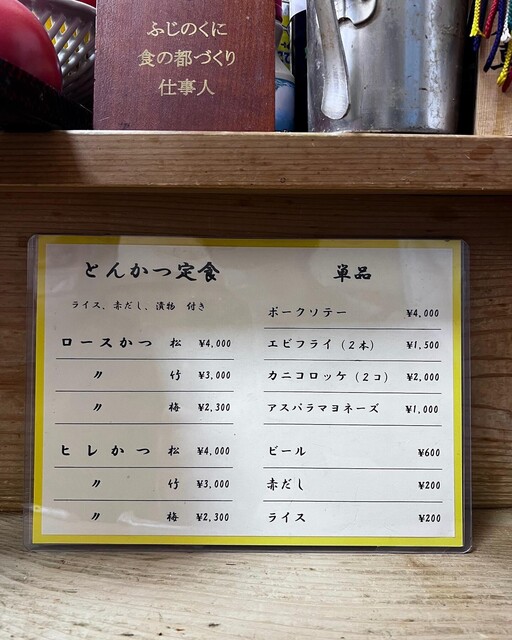 ふじのくに
食の都づくり
仕事人
とんかつ定食
ライス、赤だし、漬物 付き
ロースかつ 松 ¥4,000
〃 竹 ¥3,000
〃 梅 ¥2,300
ヒレかつ 松 ¥4,000
〃 竹 ¥3,000
〃 梅 ¥2,300
単品
ポークソテー ¥4,000
エビフライ(2本) ¥1,500
カニコロッケ(2コ) ¥2,000
アスパラマヨネーズ ¥1,000
ビール ¥600
赤だし ¥200
ライス ¥200